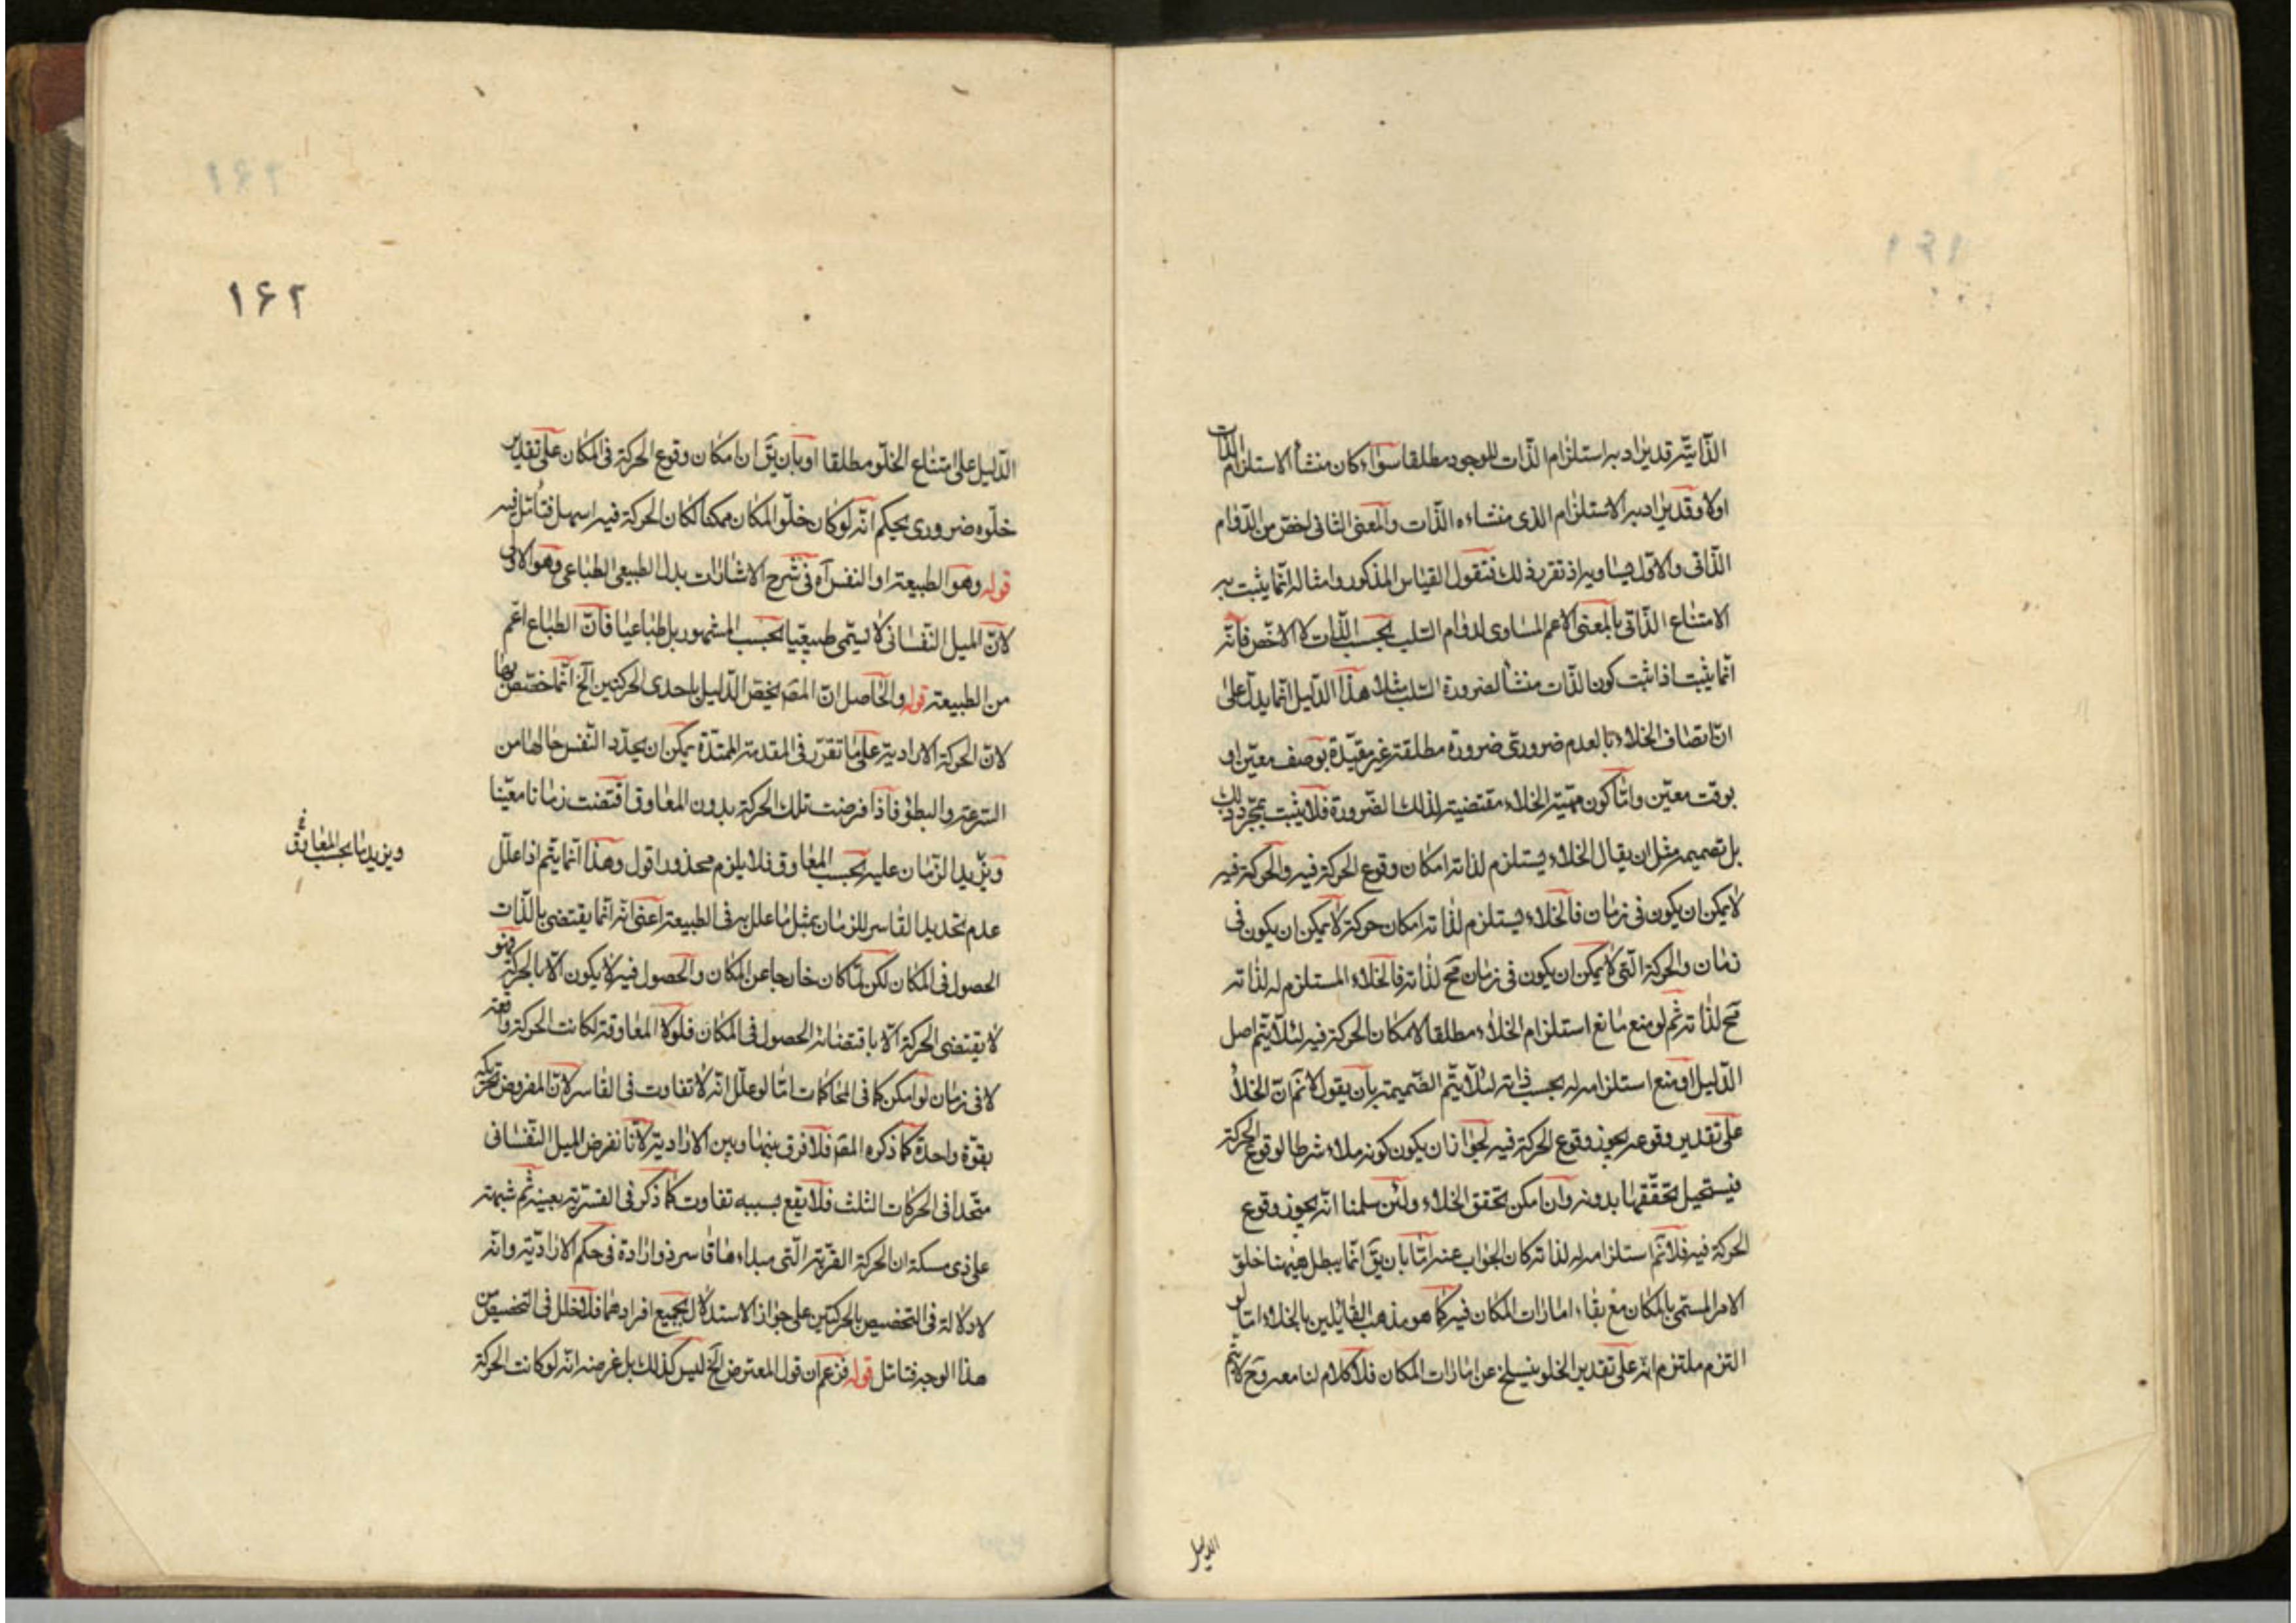 الذاتية قد يراد به استلزام الذات للوجود مطلقا سواء كان منشأ الاستلزام الذات
اولا وقد يراد به الاستلزام الذى منشاءه الذات والمعنى الثانى اخص من الدوام
الذاتى والاول يساويه اذ تقرر ذلك فنقول القياس المذكور وامثاله انما يثبت به
الامتناع الذاتى بالمعنى الاعم المساوى لدوام السلب بحسب الذات لا الاخص فانه
انما يثبت اذا ثبت كون الذات منشأ لضرورة السلب مثلا هذا الدليل انما يدل على
ان اتصاف الخلاء بالعدم ضرورى ضرورة مطلقة غير مقيدة بوصف معين او
بوقت معين واما كون مهية الخلاء مقتضية لذلك الضرورة فلا يثبت بمجرد ذلك
بل تصميمه مثل ان يقال الخلاء يستلزم لذاته امكان وقوع الحركة فيه والحركة فيه
لا يمكن ان يكون فى زمان فالخلاء يستلزم لذاته امكان حركة لا يمكن ان يكون فى
زمان والحركة التى لا يمكن ان يكون فى زمان مح لذاته فالخلاء المستلزم له لذاته
مح لذاته ثم لو منع مانع استلزام الخلاء مطلقا لامكان الحركة فيه لئلا يتم اصل
الدليل او منع استلزامه له بحسب ذاته لئلا يتم الضميمة بان يقول لا نم ان الخلأ
على تقدير وقوعه يجوز وقوع الحركة فيه لجواز ان يكون كونه ملاء شرطا لوقوع الحركة
فيستحيل تحققها بدونه وان امكن تحقق الخلاء ولئن سلمنا انه يجوز وقوع
الحركة فيه فلا نم استلزامه له لذاته كان الجواب عنه اما بان يق انما يبطل ههنا خلو
الامر المسمى بالمكان مع بقاء امارات المكان فيه كما هو مذهب القايلين بالخلاء اما لو
التزم ملتزم انه على تقدير الخلو ينسلخ عن امارات المكان فلا كلام لنا معه وح لا يتم
الدليل
١٦٢
الدليل على امتناع الخلو مطلقا او بان يق ان امكان وقوع الحركة فى المكان على تقدير
خلوه ضرورى يحكم انه لو كان خلو المكان ممكنا لكان الحركة فيه اسهل فتأمل فيه
قوله وهو الطبيعة او النفس آه فى شرح الاشارات بدل الطبيعى الطباعى وهو الاولى
لان الميل النفسانى لا يسمى طبيعيا بحسب المشهور بل طباعيا فان الطباع اعم
من الطبيعة قوله والحاصل ان المصـ يخص الدليل باحدى الحركتين الخ انما خصص بهما
لان الحركة الارادية على ما تقرر فى المقدمة الممهدة يمكن ان يحدد النفس حالها من
السرعة والبطؤ فاذا فرضت تلك الحركة بدون المعاوق اقتضت زمانا معينا
ويزيد الزمان عليه بحسب المعاوق فلا يلزم محذور اقول وهذا انما يتم اذا علل
ويزيد ما بحسب المعاوق
عدم تحديد القاسر للزمان بمثل ما علل به فى الطبيعة اعنى انه انما يقتضى بالذات
الحصول فى المكان لكن لما كان خارجا عن المكان والحصول فيه لا يكون الا بالحركة فهو
لا يقتضى الحركة الا باقتضائه الحصول فى المكان فلولا المعاوقة لكانت الحركة واقعة
لا فى زمان لو امكن كما فى المحاكمات اما لو علل انه لا تفاوت فى القاسر لان المفروض تحريكه
بقوة واحدة كما ذكره المصـ فلا فرق بينها وبين الارادية لانا نفرض الميل النفسانى
متحدا فى الحركات الثلث فلا يقع بسببه تفاوت كما ذكر فى القسرية بعينه ثم شبهته
على ذى مسكة ان الحركة القسرية التى مبداءها قاسر ذو ارادة فى حكم الارادية وانه
لا دلالة فى التخصيص بالحركتين على جواز الاستدلال بجميع افرادهما فلا خلل فى التخصيص من
هذا الوجه فتامل قوله فزعم ان قول المعترض الخ ليس كذلك بل غرضه انه لو كانت الحركة